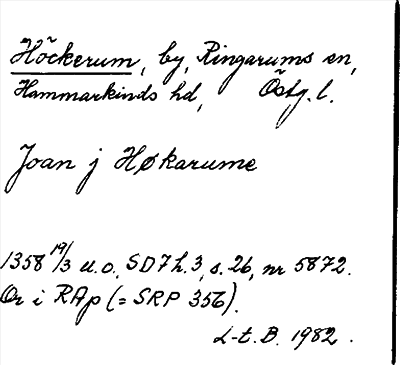 Höckerum, by, Ringarums sn,
Hammarkinds hd, Östg. l.
Joan j Høkarume
1358 19/3 u.o. SD7 h.3, s. 26, nr 5872.
Or i RAp (= SRP 356).
L-t. B. 1982.